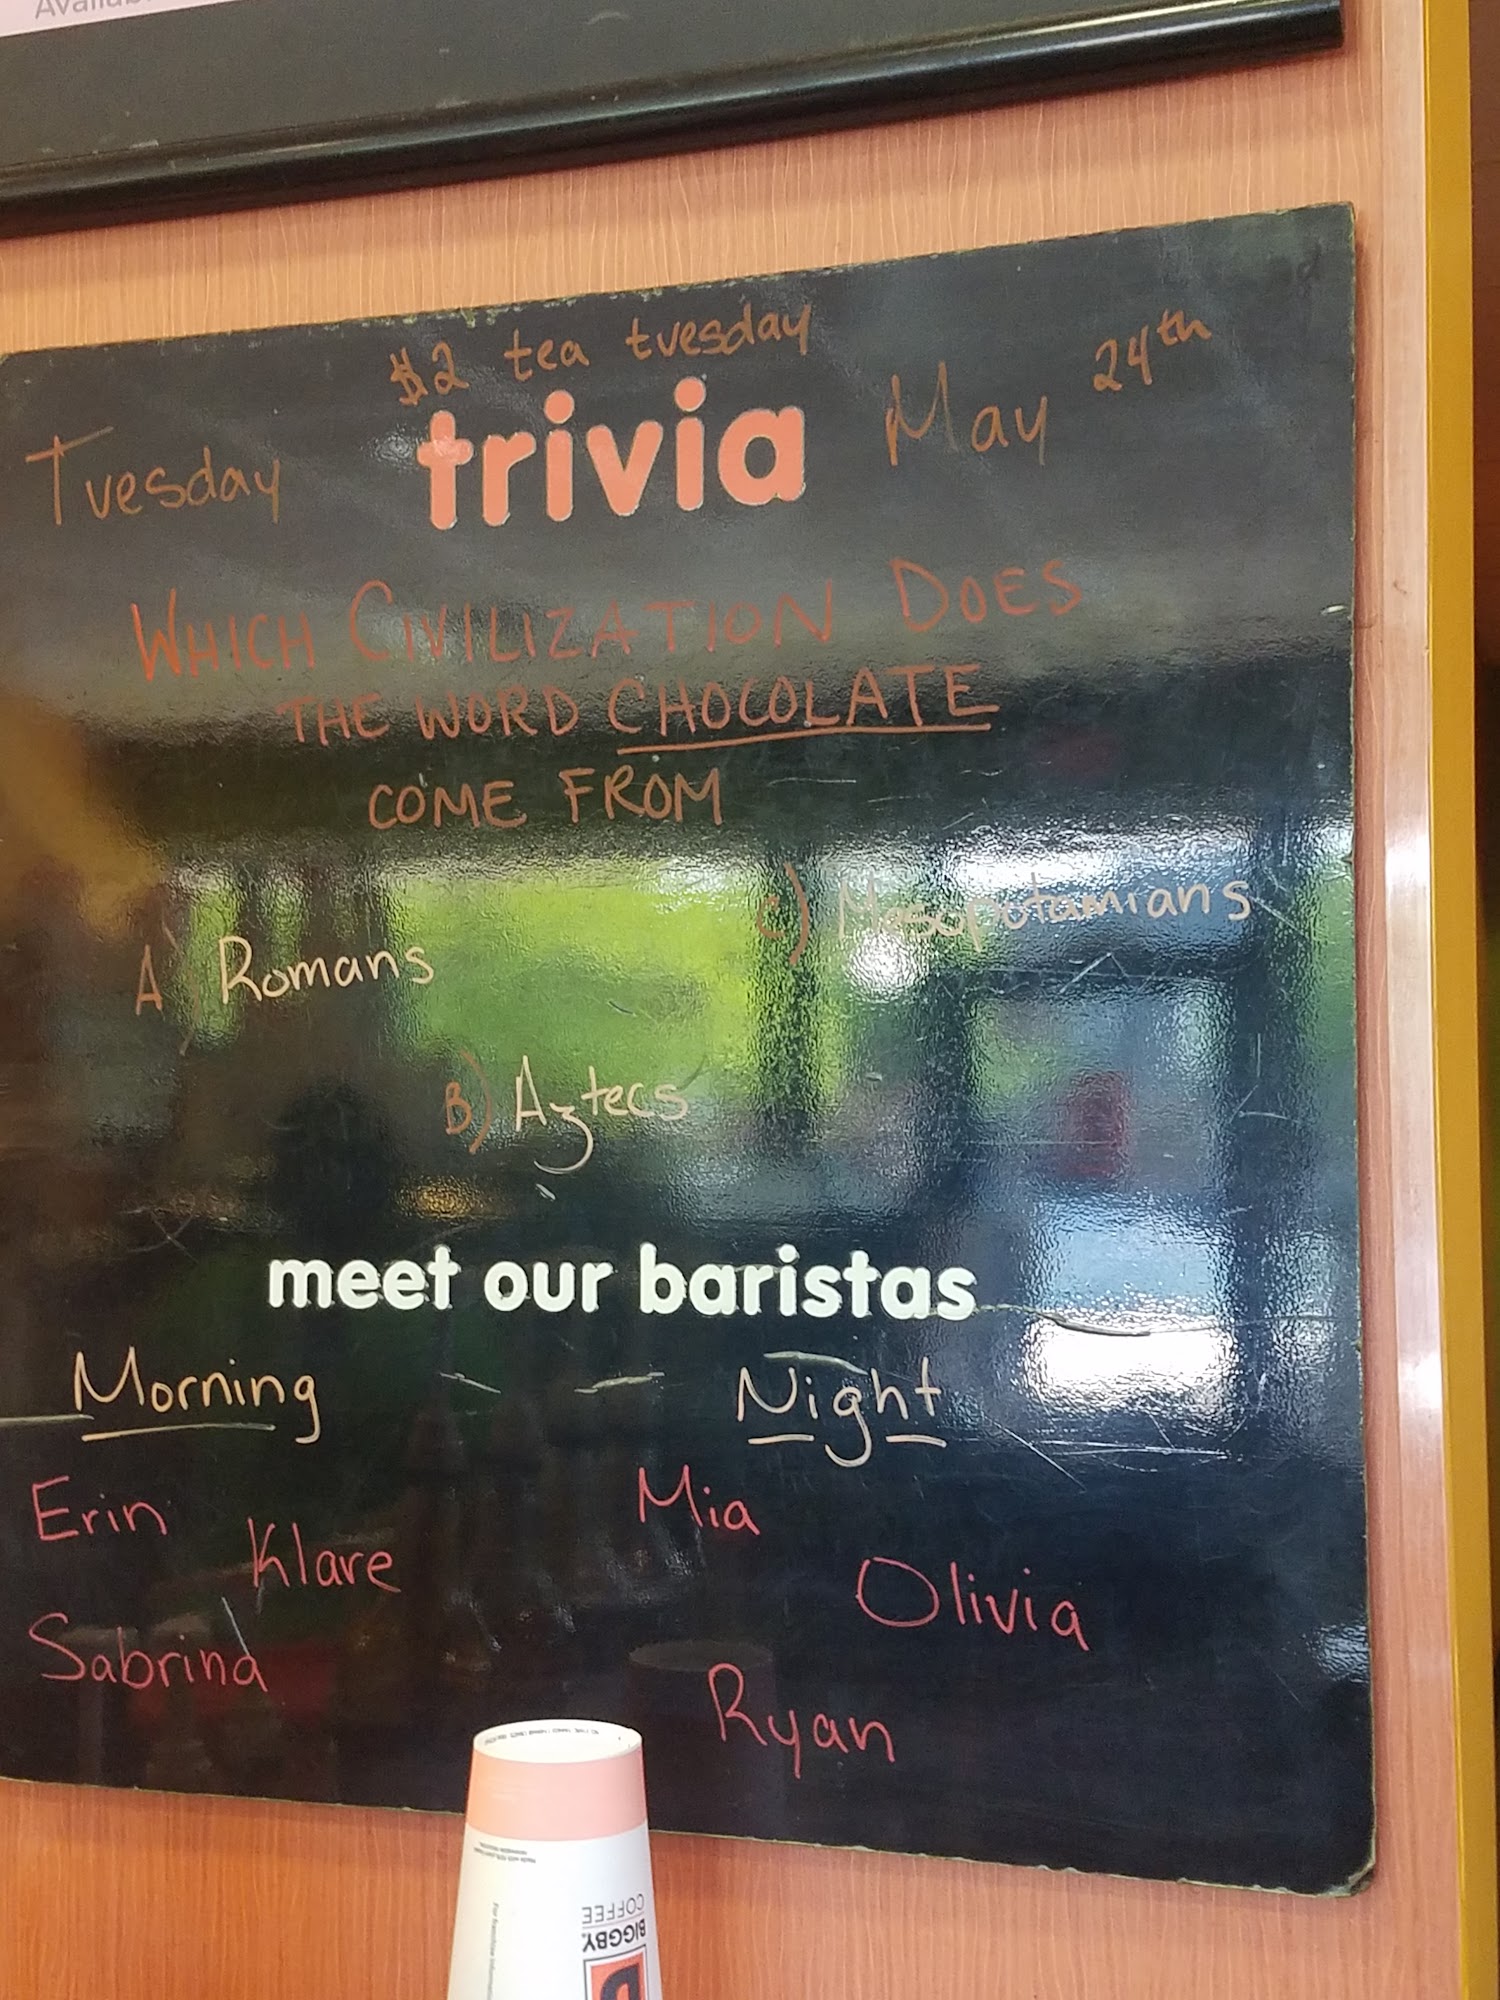 Availab
$2 tea tuesday
Tuesday trivia May 24th
WHICH CIVILIZATION DOES
THE WORD CHOCOLATE
COME FROM
A) Romans
C) Mesopotamians
B) Aztecs
meet our baristas
Morning
Night
Erin
Klare
Sabrina
Mia
Olivia
Ryan
BIGGBY.
COFFEE